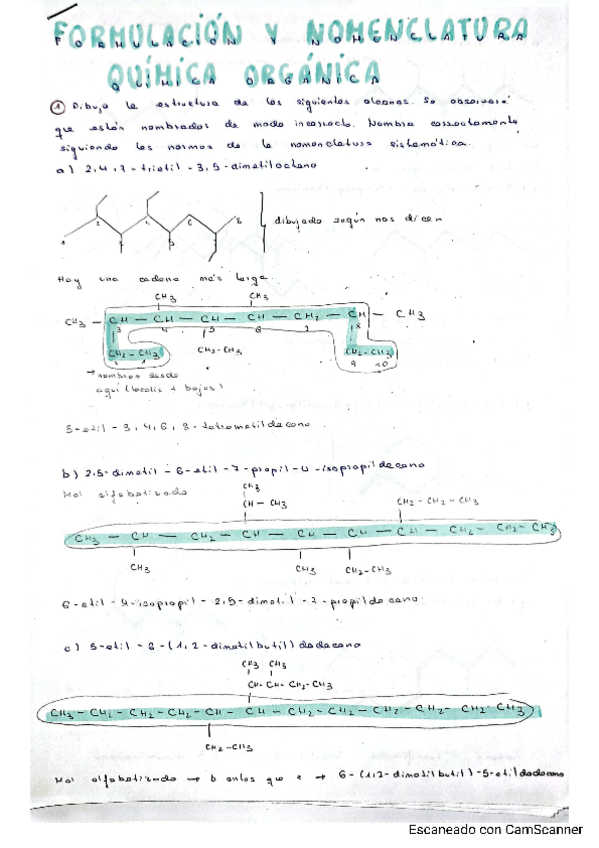 FORMULACIÓN Y NOMENCLATURA
QUÍMICA ORGÁNICA
① Dibuja la estructura de los siguientes alcanos. Se observará
que están nombrados de modo incorrecto. Nombra correctamente
siguiendo las normas de la nomenclatura sistemática.
a) 2,4,7-trietil-3,5-dimetiloctano
1 2 3 4 5 6 7 8
dibujado según nos dicen
Hay una cadena más larga
CH3 CH3
CH3 — CH — CH — CH — CH — CH2 — CH — CH3
3 4 5 6 7 8
CH2-CH3 CH2-CH3 CH2-CH3
2 1 9 10
nombras desde
aquí (localiz + bajos)
5-etil-3,4,6,8-tetrametildecano
b) 2,5-dimetil-6-etil-7-propil-4-isopropildecano
Mal alfabetizado
CH3
CH-CH3 CH2-CH2-CH3
CH3 — CH — CH2 — CH — CH — CH — CH — CH2 — CH2 — CH3
CH3 CH3 CH2-CH3
6-etil-4-isopropil-2,5-dimetil-7-propildecano
c) 5-etil-6-(1,2-dimetilbutil)dodecano
CH3 CH3
CH-CH-CH2-CH3
CH3-CH2-CH2-CH2-CH-CH-CH2-CH2-CH2-CH2-CH2-CH3
CH2-CH3
Mal alfabetizado → b antes que e → 6-(1,2-dimetilbutil)-5-etildodecano
Escaneado con CamScanner